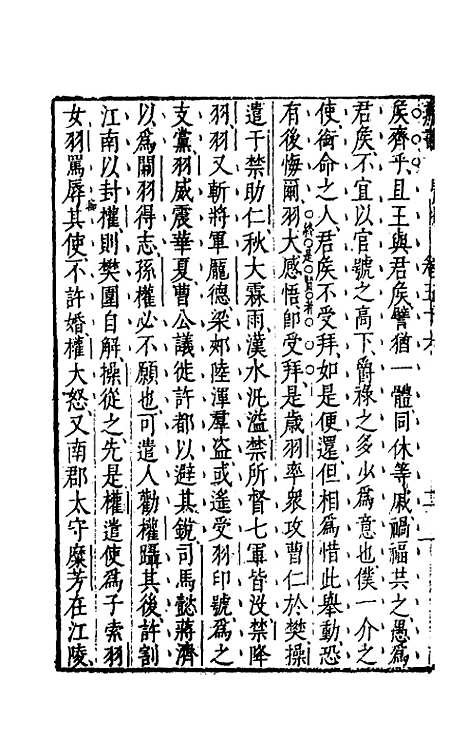 矦齊乎且王與君矦譬猶一體同休等戚禍福共之愚爲
君矦不宜以官號之高下爵祿之多少爲意也僕一介之
使銜命之人君矦不受拜如是便還但相爲惜此舉動恐
有後悔爾羽大感悟卽受拜是歲羽率衆攻曹仁於樊操
遣于禁助仁秋大霖雨漢水汎溢禁所督七軍皆没禁降
羽羽又斬將軍龎德梁郟陸渾羣盜或遙受羽印號爲之
支黨羽威震華夏曹公議徙許都以避其銳司馬懿蔣濟
以爲關羽得志孫權必不願也可遣人勸權躡其後許割
江南以封權則樊圍自解操從之先是權遣使爲子索羽
女羽罵辱其使不許婚權大怒又南郡太守糜芳在江陵